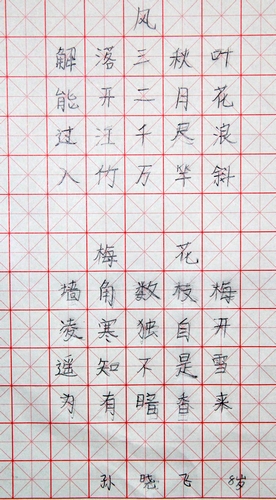 风
解落三秋叶
能开二月花
过江千尺浪
入竹万竿斜
梅花
墙角数枝梅
凌寒独自开
遥知不是雪
为有暗香来
孙晓飞 8岁